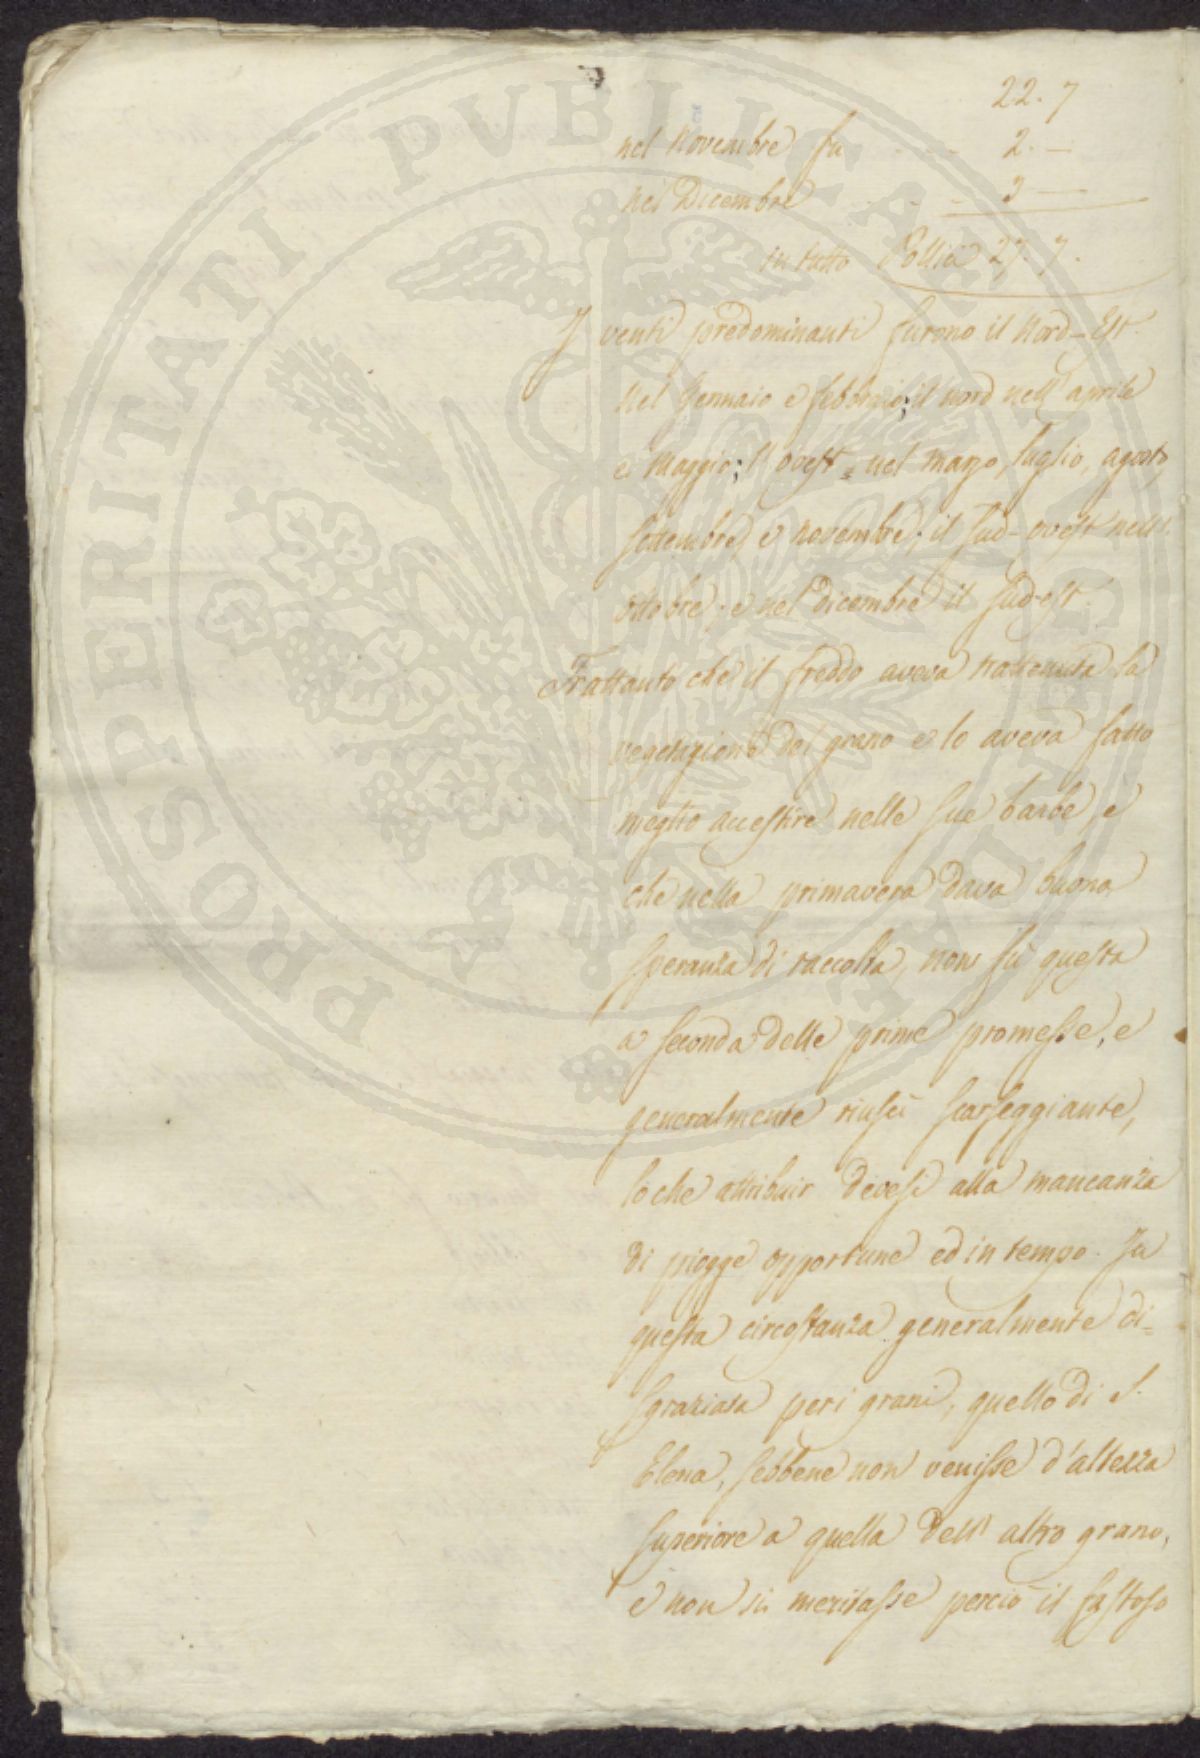 22. 7
nel Novembre fu - - - 2. —
nel Dicembre - - - 3 —
in tutto Pollici 27. 7.
I venti predominanti furono il Nord-Est
nel Gennaio e febbraio; il nord nell'aprile
e Maggio; l'ovest = nel marzo, luglio, agosto,
settembre, e novembre; il sud-ovest nell'
ottobre; e nel dicembre il sud-est.
Frattanto che il freddo aveva rattenuta la
vegetazione del grano e lo aveva fatto
meglio accestire nelle sue barbe, e
che nella primavera dava buona
speranza di raccolta, non fù questa
a seconda delle prime promesse, e
generalmente riuscì scarseggiante,
loche attribuir devesi alla mancanza
di piogge opportune ed in tempo. In
questa circostanza generalmente di=
sgraziata per i grani, quello di S.
Elena, sebbene non venisse d'altezza
superiore a quella dell'altro grano,
e non si meritasse perciò il fastoso
PROSPERITATI PUBLICAE AUGENDAE